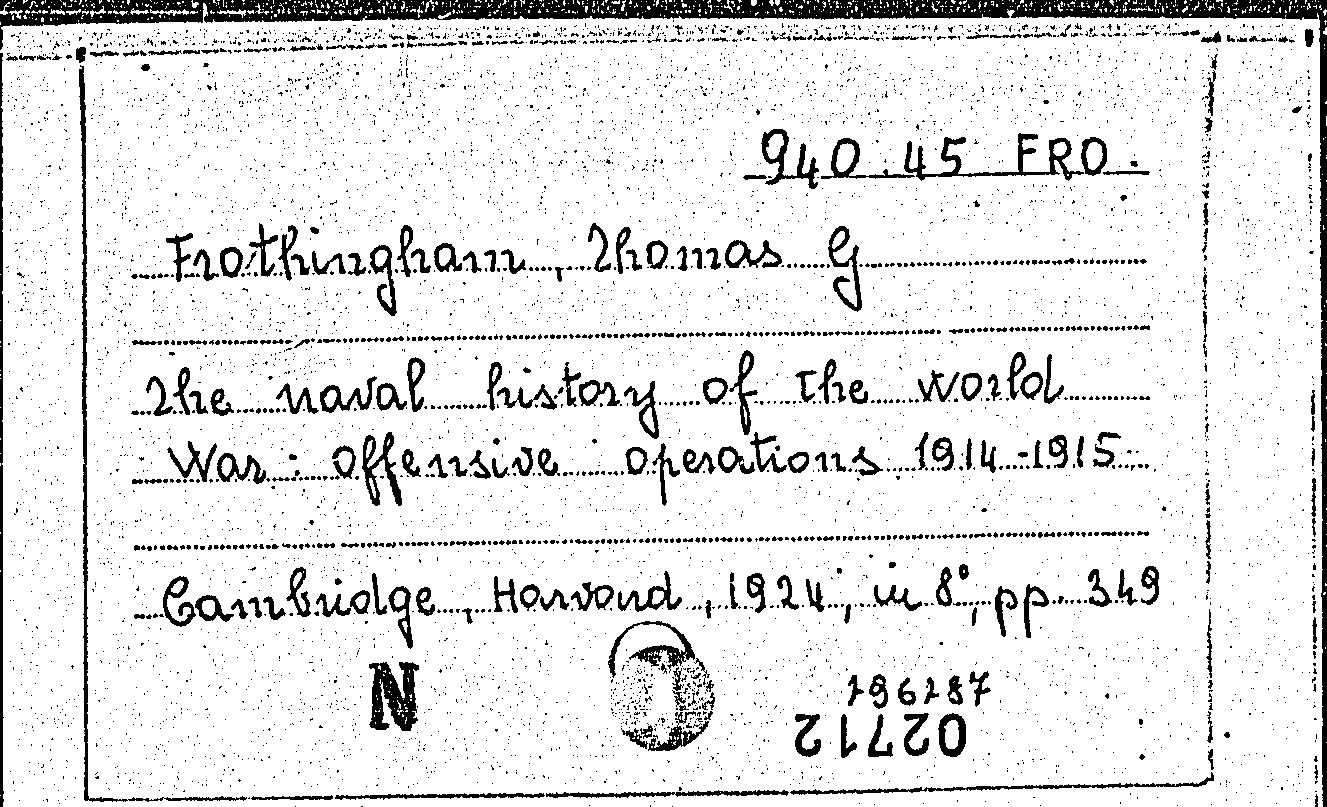 940.45 FRO.
Frothingham, Thomas G
The naval history of the world
War: offensive operations 1914-1915
Cambridge, Harvard, 1924, in 8°, pp. 349
N
196287
02712